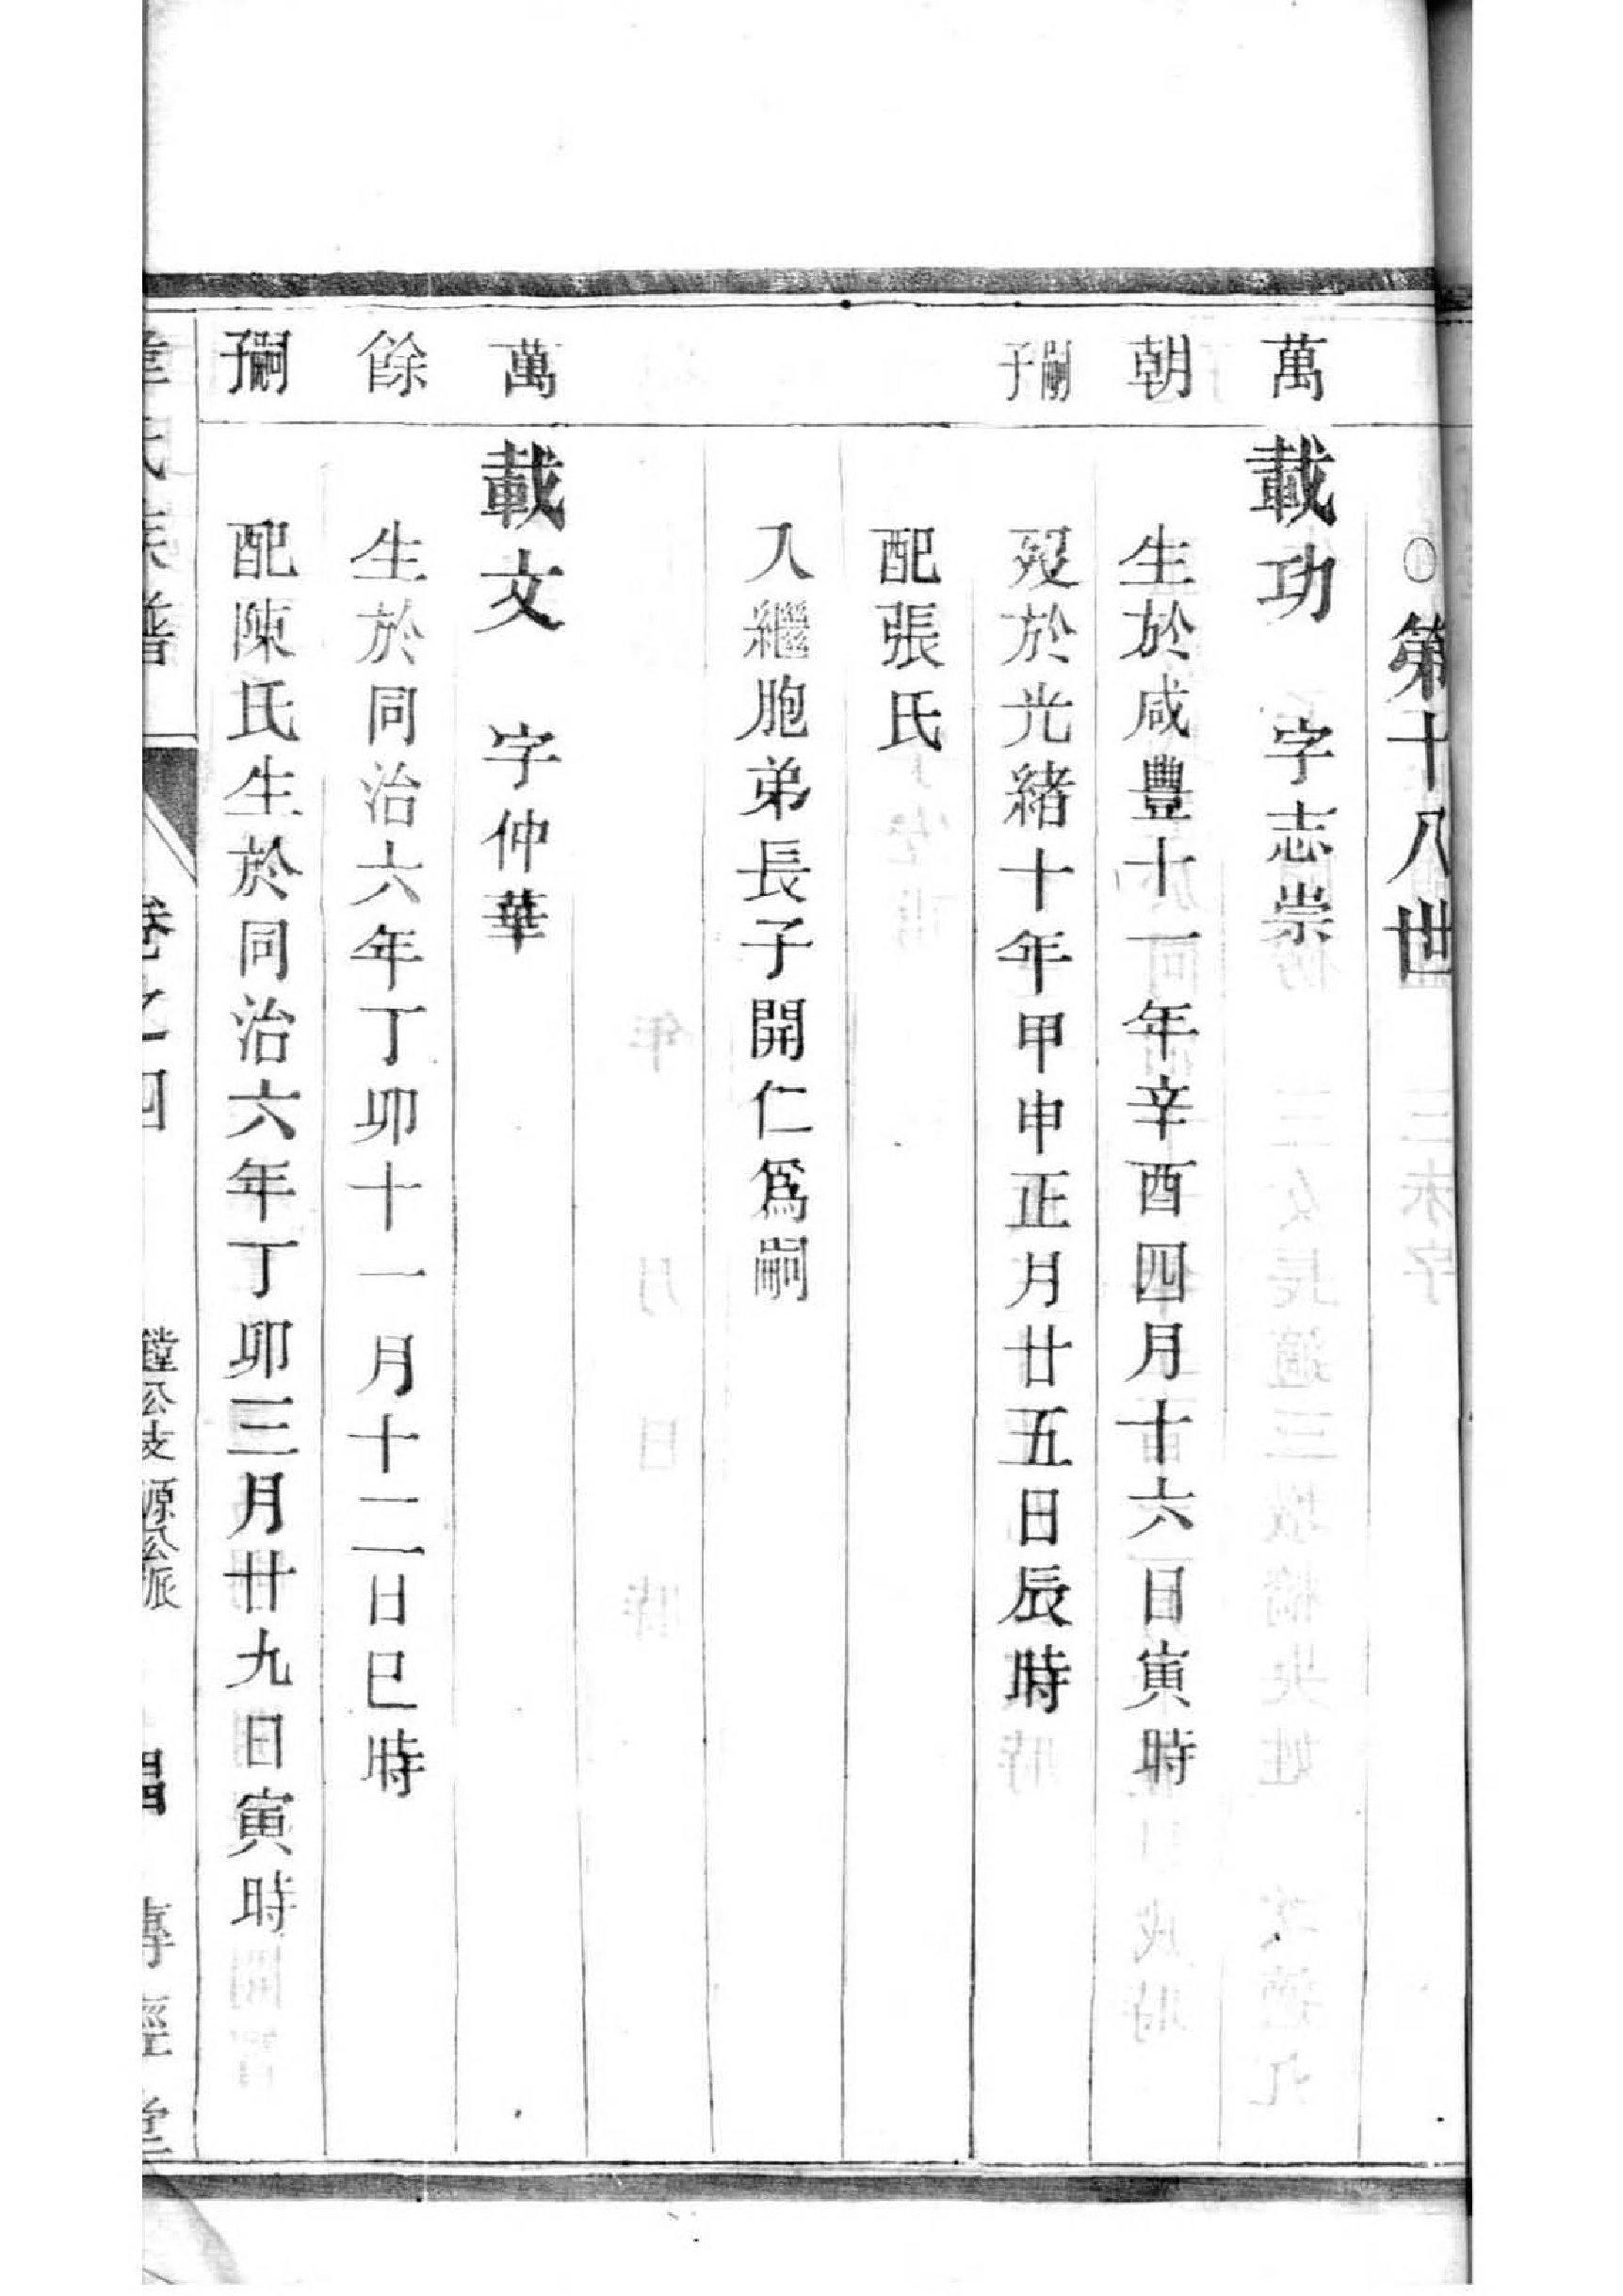 第十八世
萬朝嗣子
載功 字志崇
生於咸豐十一年辛酉四月十六日寅時
歿於光緒十年甲申正月廿五日辰時
配張氏
入繼胞弟長子開仁爲嗣
萬餘嗣子
載文 字仲華
生於同治六年丁卯十一月十二日巳時
配陳氏生於同治六年丁卯三月廿九日寅時
氏族譜 卷之四 鏜公支源公派 傳經堂